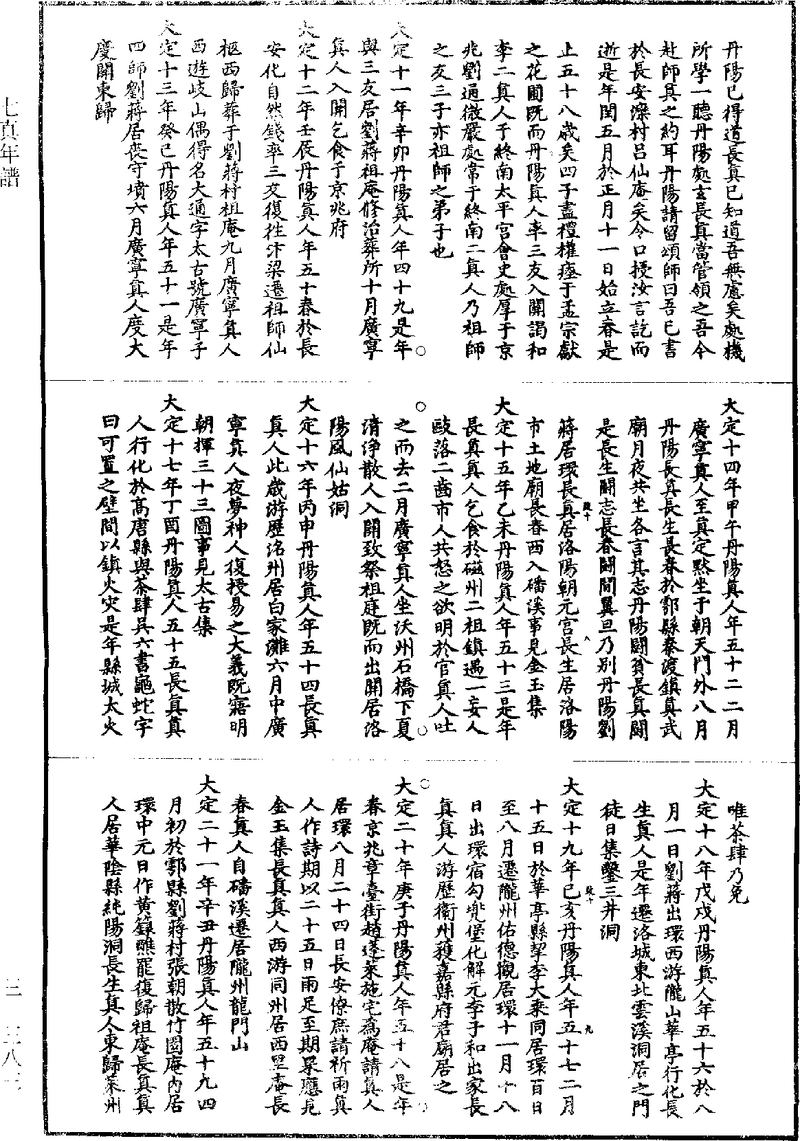 丹陽已得道長真已知道吾無慮矣處機
所學一聽丹陽處玄長真當管領之吾今
赴師真之約耳丹陽請留頌師曰吾已書
於長安灤村呂仙庵矣今口授汝言訖而
逝是年閏五月於正月十一日始立春是
止五十八歲矣四子盡禮權瘞于孟宗獻
之花圃既而丹陽真人率三友入關謁和
李二真人于終南太平宮會史處厚于京
兆劉通微嚴處常于終南二真人乃祖師
之友三子亦祖師之弟子也
大定十一年辛卯丹陽真人年四十九是年
與三友居劉蔣祖庵修治葬所十月廣寧
真人入關乞食于京兆府
大定十二年壬辰丹陽真人年五十春於長
安化自然錢率三友復往汴梁遷祖師仙
柩西歸葬于劉蔣村祖庵九月廣寧真人
西遊岐山偶得名大通字太古號廣寧子
大定十三年癸巳丹陽真人年五十一是年
四師劉蔣居喪守墳六月廣寧真人度大
慶關東歸
大定十四年甲午丹陽真人年五十二二月
廣寧真人至真定默坐于朝天門外八月
丹陽長真長生長春於鄠縣秦渡鎮真武
廟月夜共坐各言其志丹陽鬬貧長真鬬
是長生鬬志長春鬬閒翼旦乃別丹陽劉
蔣居環長真居洛陽朝元宮長生居洛陽
市土地廟長春西入磻溪事見金玉集
大定十五年乙未丹陽真人年五十三是年
長真真人乞食於磁州二祖鎮遇一妄人
毆落二齒市人共怒之欲明於官真人吐
之而去二月廣寧真人坐沃州石橋下夏
清淨散人入關致祭祖庭既而出關居洛
陽風仙姑洞
大定十六年丙申丹陽真人年五十四長真
真人此歲游歷洺州居白家灘六月中廣
寧真人夜夢神人復授易之大義既寤明
朝揮三十三圖事見太古集
大定十七年丁酉丹陽真人五十五長真真
人行化於高唐縣與茶肆吳六書龜蛇字
曰可置之壁間以鎮火災是年縣城大火
唯茶肆乃免
大定十八年戊戌丹陽真人年五十六於八
月一日劉蔣出環西游隴山華亭行化長
生真人是年遷洛城東北雲溪洞居之門
徒日集鑿三井洞
大定十九年己亥丹陽真人年五十七二月
十五日於華亭縣挈李大乘同居環百日
至八月遷隴州佑德觀居環十一月十八
日出環宿勾兜堡化解元李子和出家長
真真人游歷衛州獲嘉縣府君廟居之
大定二十年庚子丹陽真人年五十八是年
春京兆章臺街趙蓬萊施宅為庵請真人
居環八月二十四日長安僚庶請祈雨真
人作詩期以二十五日雨足至期果應見
金玉集長真真人西游同州居西里庵長
春真人自磻溪遷居隴州龍門山
大定二十一年辛丑丹陽真人年五十九四
月初於鄠縣劉蔣村張朝散竹園庵內居
環中元日作黃籙醮罷復歸祖庵長真真
人居華陰縣純陽洞長生真人東歸萊州
七真年譜
三
三八三